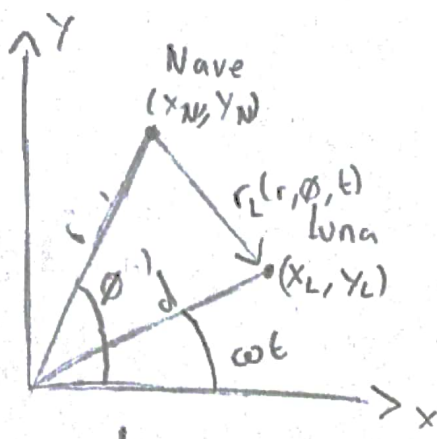 Y
Nave
(X_N, Y_N)
r_L(r, ø, t)
luna
(X_L, Y_L)
ø
d
ωt
x